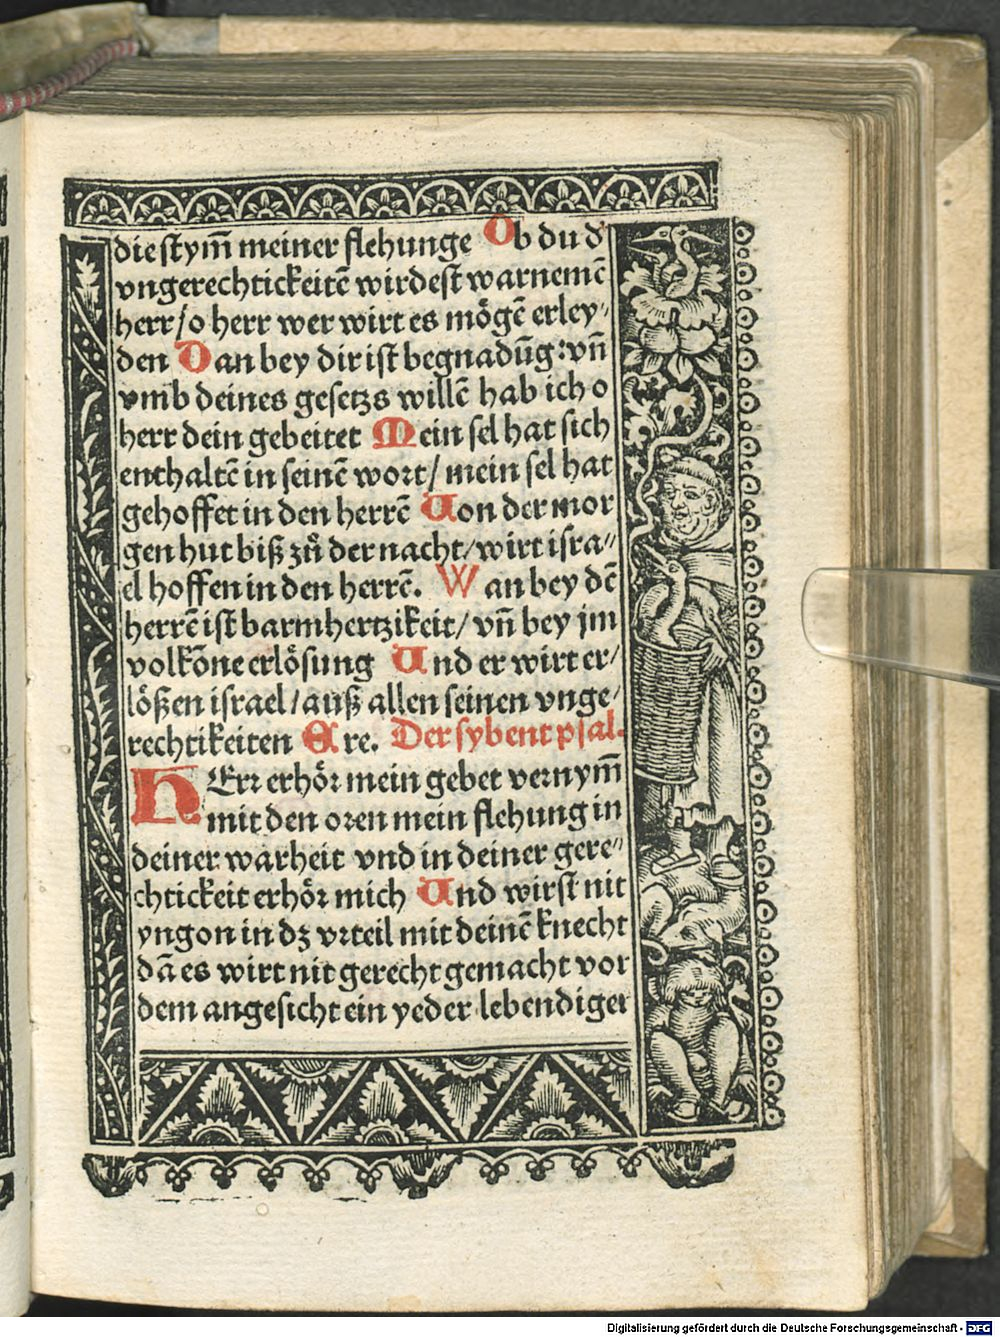 die stym̃ meiner flehunge Ob du d᷑
vngerechtickeitẽ wirdest warnemẽ
herr/o herr wer wirt es mögẽ erley⸗
den Dan bey dir ist begnadũg: vñ
vmb deines gesetzs willẽ hab ich o
herr dein gebeitet Mein sel hat sich
enthaltẽ in seinẽ wort/mein sel hat
gehoffet in den herrẽ Von der mor
gen hut biß zů der nacht/wirt isra⸗
el hoffen in den herrẽ. Wan bey dẽ
herrẽ ist barmhertzikeit/vñ bey jm
volkõne erlösung Vnd er wirt er⸗
lößen israel/auß allen seinen vnge⸗
rechtikeiten Ere. Der sybent psal.
HErr erhör mein gebet vernym̃
mit den oren mein flehung in
deiner warheit vnd in deiner gere⸗
chtickeit erhör mich Vnd wirst nit
yngon in dz vrteil mit deinẽ knecht
dã es wirt nit gerecht gemacht vor
dem angesicht ein yeder lebendiger
Digitalisierung gefördert durch die Deutsche Forschungsgemeinschaft - DFG